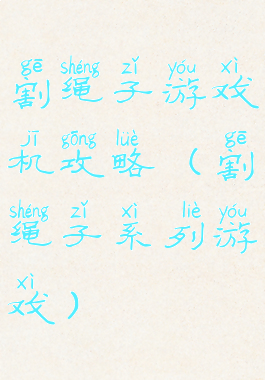 gē shéng zǐ yóu xì
割绳子游戏
jī gōng lüè gē
机攻略（割
shéng zǐ xì liè yóu
绳子系列游
xì
戏）